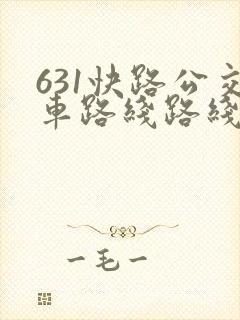 631快路公交
車路綫路綫
一毛一